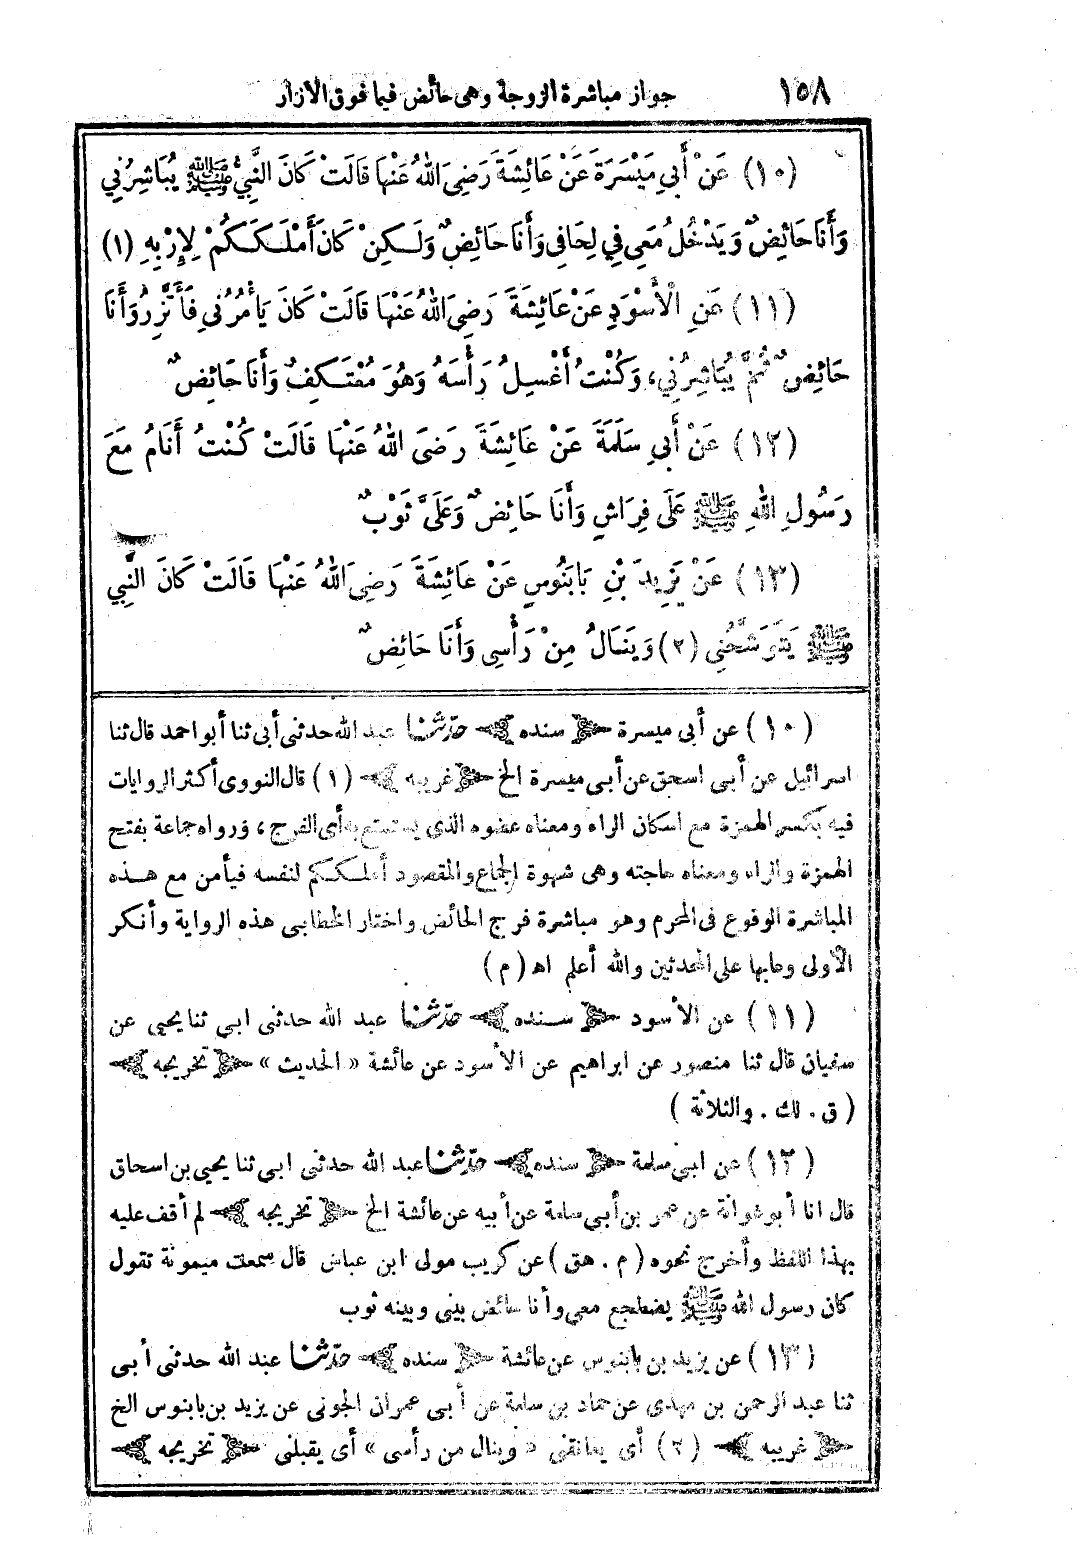 ١٥٨ جواز مباشرة الزوجة وهى حائض فيما فوق الازار
(١٠) عَنْ أَبِي مَيْسَرَةَ عَنْ عَائِشَةَ رَضِيَ اللهُ عَنْهَا قَالَتْ كَانَ النَّبِيُّ ﷺ يُبَاشِرُنِي
وَأَنَا حَائِضٌ وَيَدْخُلُ مَعِي فِي لِحَافِي وَأَنَا حَائِضٌ وَلَكِنْ كَانَ أَمْلَكَكُمْ لِإِرْبِهِ (١)
(١١) عَنِ الْأَسْوَدِ عَنْ عَائِشَةَ رَضِيَ اللهُ عَنْهَا قَالَتْ كَانَ يَأْمُرُنِي فَأَتَّزِرُ وَأَنَا
حَائِضٌ ثُمَّ يُبَاشِرُنِي، وَكُنْتُ أَغْسِلُ رَأْسَهُ وَهُوَ مُعْتَكِفٌ وَأَنَا حَائِضٌ
(١٢) عَنْ أَبِي سَلَمَةَ عَنْ عَائِشَةَ رَضَىَ اللهُ عَنْهَا قَالَتْ كُنْتُ أَنَامُ مَعَ
رَسُولِ اللهِ ﷺ عَلَى فِرَاشٍ وَأَنَا حَائِضٌ وَعَلَىَّ ثَوْبٌ
(١٣) عَنْ يَزِيدَ بْنِ بَابَنُوسٍ عَنْ عَائِشَةَ رَضِىَ اللهُ عَنْهَا قَالَتْ كَانَ النَّبِي
ﷺ يَتَوَشَّحُنِي (٢) وَيَنَالُ مِنْ رَأْسِى وَأَنَا حَائِضٌ
(١٠) عن أبى ميسرة ﴿سنده﴾ حدّثنا عبد الله حدثنى أبى ثنا أبو احمد قال ثنا
اسرائيل عن أبى اسحق عن أبى ميسرة الخ ﴿غريبه﴾ (١) قال النووى أكثر الروايات
فيه بكسر الهمزة مع اسكان الراء ومعناه عضوه الذي يستمتع به أى الفرج، ورواه جماعة بفتح
الهمزة والراء ومعناه حاجته وهى شهوة الجماع والمقصود أملككم لنفسه فيأمن مع هذه
المباشرة الوقوع فى المحرم وهو مباشرة فرج الحائض واختار الخطابى هذه الرواية وأنكر
الأولى وعابها على المحدثين والله أعلم اه (م)
(١١) عن الأسود ﴿سنده﴾ حدّثنا عبد الله حدثنى ابي ثنا يحيى عن
سفيان قال ثنا منصور عن ابراهيم عن الأسود عن عائشة « الحديث » ﴿تخريجه﴾
(ق . لك . والثلاثة)
(١٢) عن ابي سلمة ﴿سنده﴾ حدّثنا عبد الله حدثنى ابي ثنا يحيى بن اسحاق
قال انا أبو عوانة عن عمر بن أبي سلمة عن أبيه عن عائشة الخ ﴿تخريجه﴾ لم أقف عليه
بهذا اللفظ وأخرج نحوه (م . هق) عن كريب مولى ابن عباس قال سمعت ميمونة تقول
كان رسول الله ﷺ يضطجع معي وأنا حائض بينى وبينه ثوب
(١٣) عن يزيد بن بابنوس عن عائشة ﴿سنده﴾ حدّثنا عبد الله حدثنى أبى
ثنا عبد الرحمن بن مهدى عن حماد بن سلمة عن أبى عمران الجونى عن يزيد بن بابنوس الخ
﴿غريبه﴾ (٢) أى يعانقنى « وينال من رأسى » أى يقبلنى ﴿تخريجه﴾